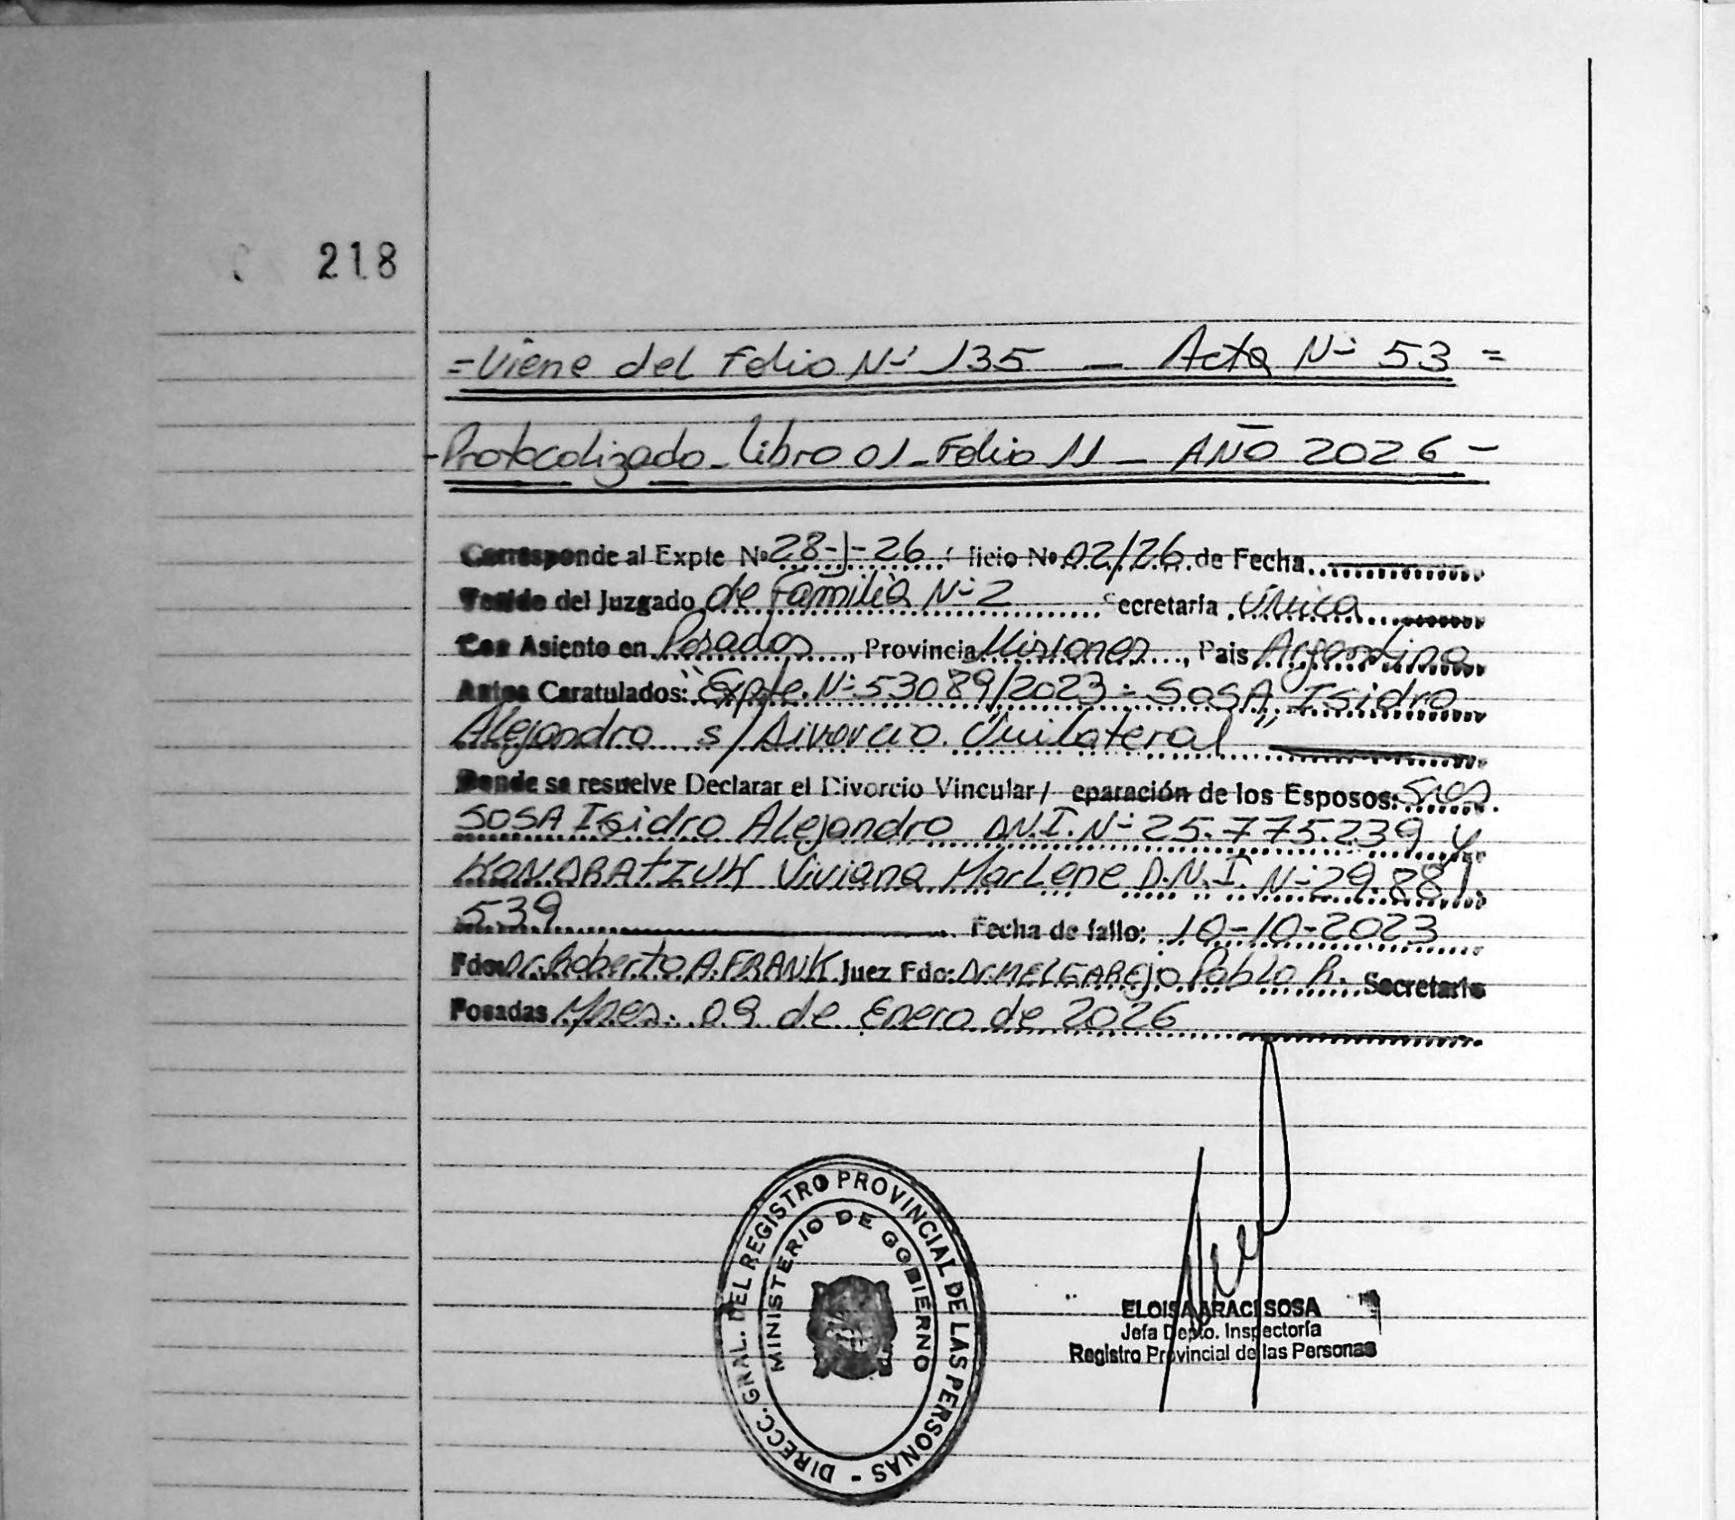 218
=Viene del Folio Nº 135 — Acta Nº 53=
-Protocolizado-Libro 01-Folio 11- AÑO 2026-
Corresponde al Expte Nº 28-J-26, ficio Nº 02/26 de Fecha
Tenido del Juzgado de Familia Nº 2 Secretaria Única
Con Asiento en Posadas, Provincia Misiones, Pais Argentina
Autos Caratulados: "Expte. Nº 53089/2023- SOSA Isidro
Alejandro s/Divorcio Unilateral"
Donde se resuelve Declarar el Divorcio Vincular/ eparación de los Esposos: Sres.
SOSA Isidro Alejandro D.N.I. Nº 25.775.239 y
KONDRATIUK Viviana Marlene D.N.I. Nº 29.881.
539 Fecha de fallo: 10-10-2023
Fdo: Dr. Roberto A. FRANK Juez Fdo: Dr. MELGAREJO Pablo R. Secretario
Posadas Mnes. 09 de Enero de 2026
DIRECC. GRAL. DEL REGISTRO PROVINCIAL DE LAS PERSONAS -
MINISTERIO DE GOBIERNO
ELOISA ARACI SOSA
Jefa Depto. Inspectoría
Registro Provincial de las Personas